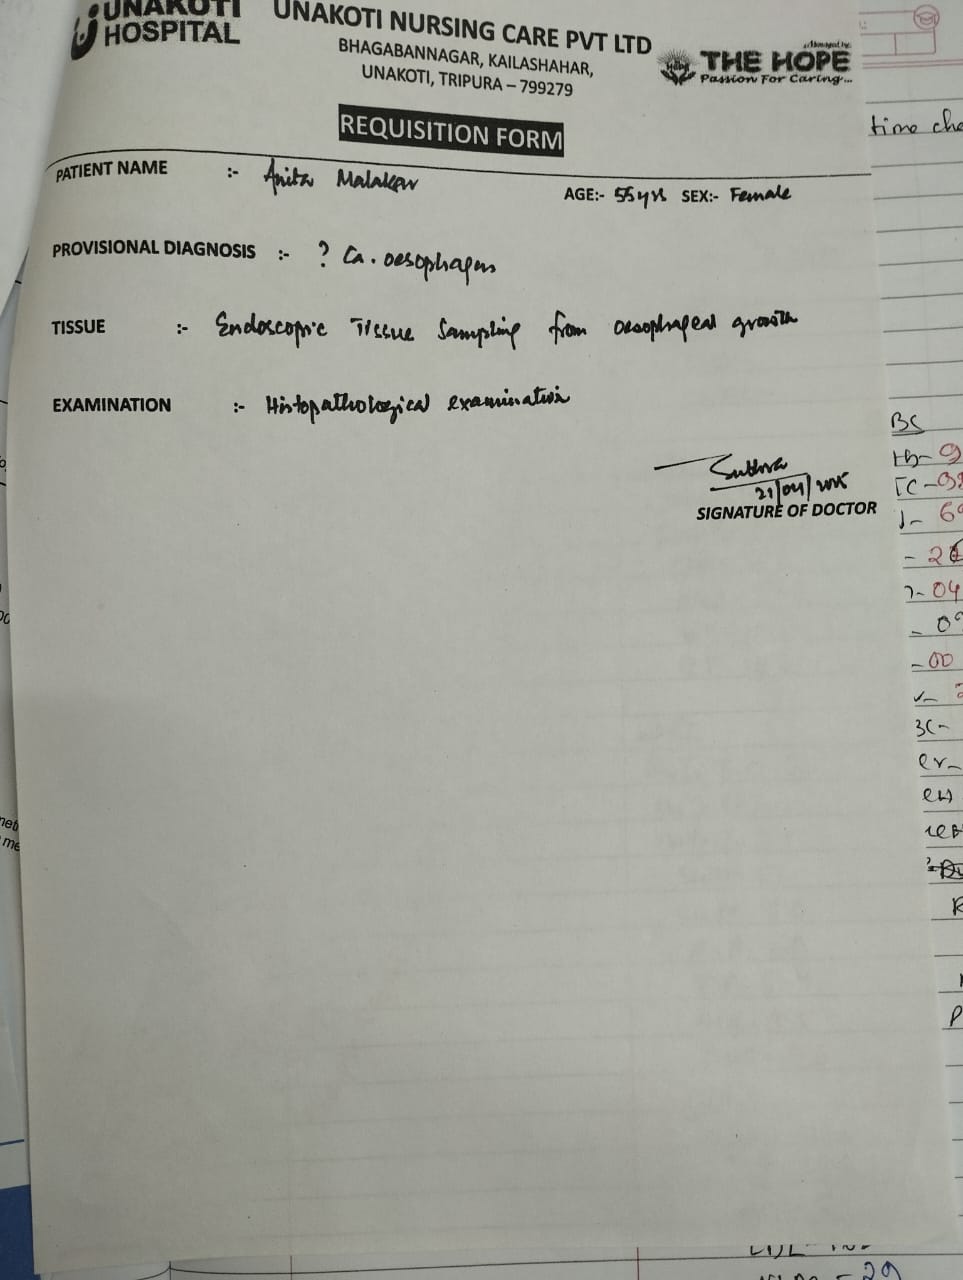 UNAKOTI HOSPITAL
UNAKOTI NURSING CARE PVT LTD
BHAGABANNAGAR, KAILASHAHAR,
UNAKOTI, TRIPURA – 799279
Managed by
THE HOPE
Passion For Caring...
REQUISITION FORM
PATIENT NAME :- Anita Malakar
AGE:- 55yrs SEX:- Female
PROVISIONAL DIAGNOSIS :- ? Ca. oesophagus
TISSUE :- Endoscopic Tissue Sampling from oesophageal growth
EXAMINATION :- Histopathological examination
21/04/2025
SIGNATURE OF DOCTOR
time cha
BC
Hb- 9
TC -
- 04
- 00
3C-